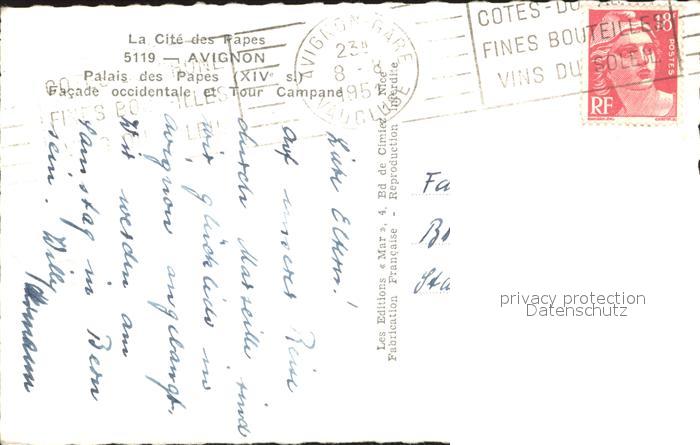 La Cité des Papes
5119 — AVIGNON
Palais des Papes (XIVe s.)
Façade occidentale et Tour Campane
AVIGNON GARE
23H
8 - 8
1951
VAUCLUSE
COTES-DU-
FINES BOUTEILLES
VINS DU SOLEIL
18F
POSTES
RF
Liebe Eltern!
Auf unserer Reise
durch Marseille sind
wir glücklich in
Avignon angelangt.
Wir werden am
Samstag in Bern
sein. Willy
Les Editions « Mar », 4, Bd de Cimiez - Nice
Fabrication Française - Reproduction Interdite
Fa
Be
Sta
privacy protection
Datenschutz